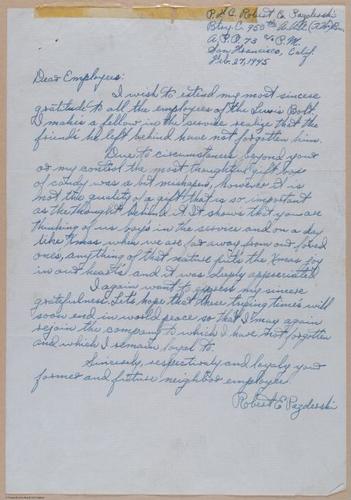 Pvt. Robert E. Pazderski
Btry C. 950th A.A.A. (A.W.) Bn.
A.P.O. 73 c/o P.M.
San Francisco, Calif.
Feb. 27, 1945
Dear Employees:
I wish to extend my most sincere
gratitude to all the employees of the Lewis Bolt.
I makes a fellow in the service realize that the
friends he left behind have not forgotten him.
Due to circumstances beyond your
or my control the most thoughtful gift box
of candy was a bit mishapen, however it is
not the quality of a gift that is so important
as the thought behind it. It shows that you are
thinking of us boys in the service and on a day
like Xmas when we are far away from our loved
ones, anything of that nature puts the Xmas joy
in our hearts and it was deeply appreciated.
I again want to express my sincere
gratefulness. Let's hope that these trying times will
soon end in world peace so that I may again
rejoin the company to which I have not forgotten
and which I remain loyal to.
Sincerely, respectively and loyaly your
former and future neighbor employee.
Robert E. Pazderski